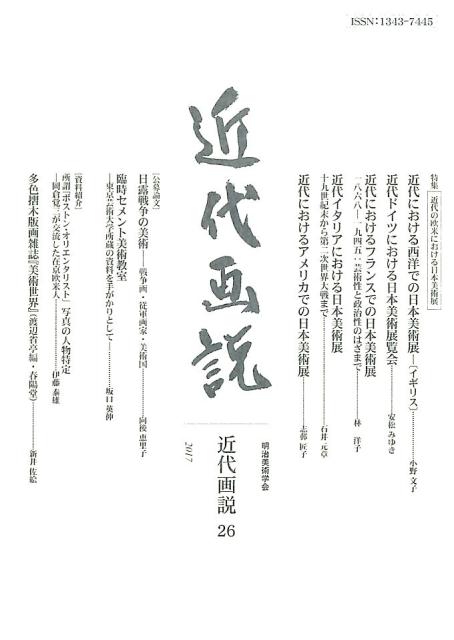 ISSN：1343-7445
特集 近代の欧米における日本美術展
近代における西洋での日本美術展―〔イギリス〕……小野 文子
近代ドイツにおける日本美術展覧会……安松 みゆき
近代におけるフランスでの日本美術展
一八六八―一九四五：芸術性と政治性のはざまで……林 洋子
近代イタリアにおける日本美術展
十九世紀末から第二次世界大戦まで……石井 元章
近代におけるアメリカでの日本美術展……志邨 匠子
近代画説
明治美術学会
近代画説 26
2017
［公募論文］
日露戦争の美術―戦争画・従軍画家・美術国……向後 恵里子
臨時セメント美術教室
―東京芸術大学所蔵の資料を手がかりとして―……坂口 英伸
［資料紹介］
所謂「ボストン・オリエンタリスト」写真の人物特定
―岡倉覚三が交流した在京欧米人―……伊藤 泰雄
多色摺木版画雑誌『美術世界』（渡辺省亭編・春陽堂）……新井 佐絵